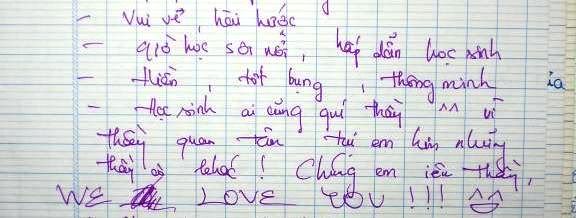 - Vui vẻ, hài hước
- giờ học sôi nổi, hấp dẫn học sinh
- Hiền, tốt bụng, thông minh
- Học sinh ai cũng quí thầy ^^ vì
thầy quan tâm tụi em hơn những
thầy cô khác! Chúng em iêu thầy,
WE LOVE YOU!!! ^^
ủa